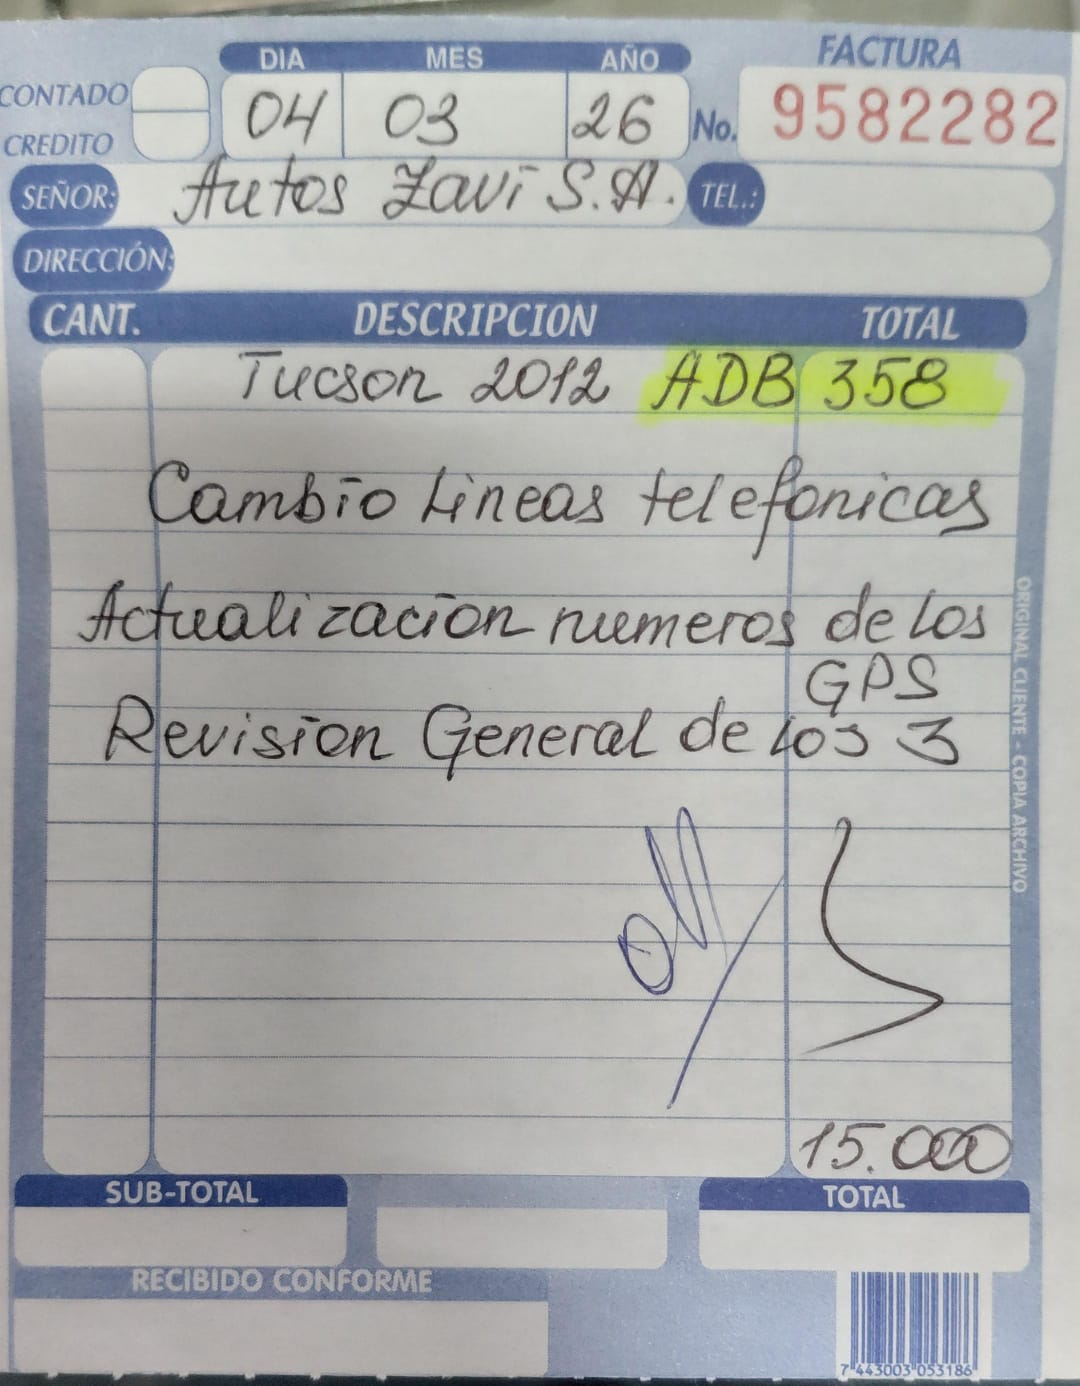 DIA MES AÑO FACTURA
CONTADO
CREDITO
04 03 26 No. 9582282
SEÑOR: Autos Zavi S.A. TEL.:
DIRECCIÓN:
CANT. DESCRIPCION TOTAL
Tucson 2012 ADB 358
Cambio Lineas telefonicas
Actualización numeros de los
GPS
Revision General de los 3
15.000
SUB-TOTAL TOTAL
RECIBIDO CONFORME
ORIGINAL CLIENTE - COPIA ARCHIVO
7 443003 053186